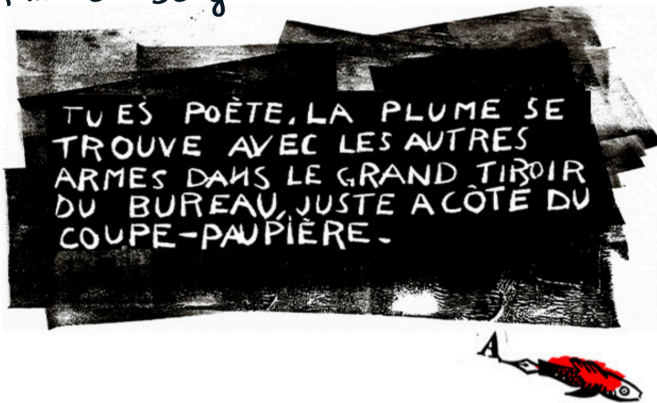 TU ES POÈTE. LA PLUME SE
TROUVE AVEC LES AUTRES
ARMES DANS LE GRAND TIROIR
DU BUREAU, JUSTE A CÔTÉ DU
COUPE-PAUPIÈRE.
A